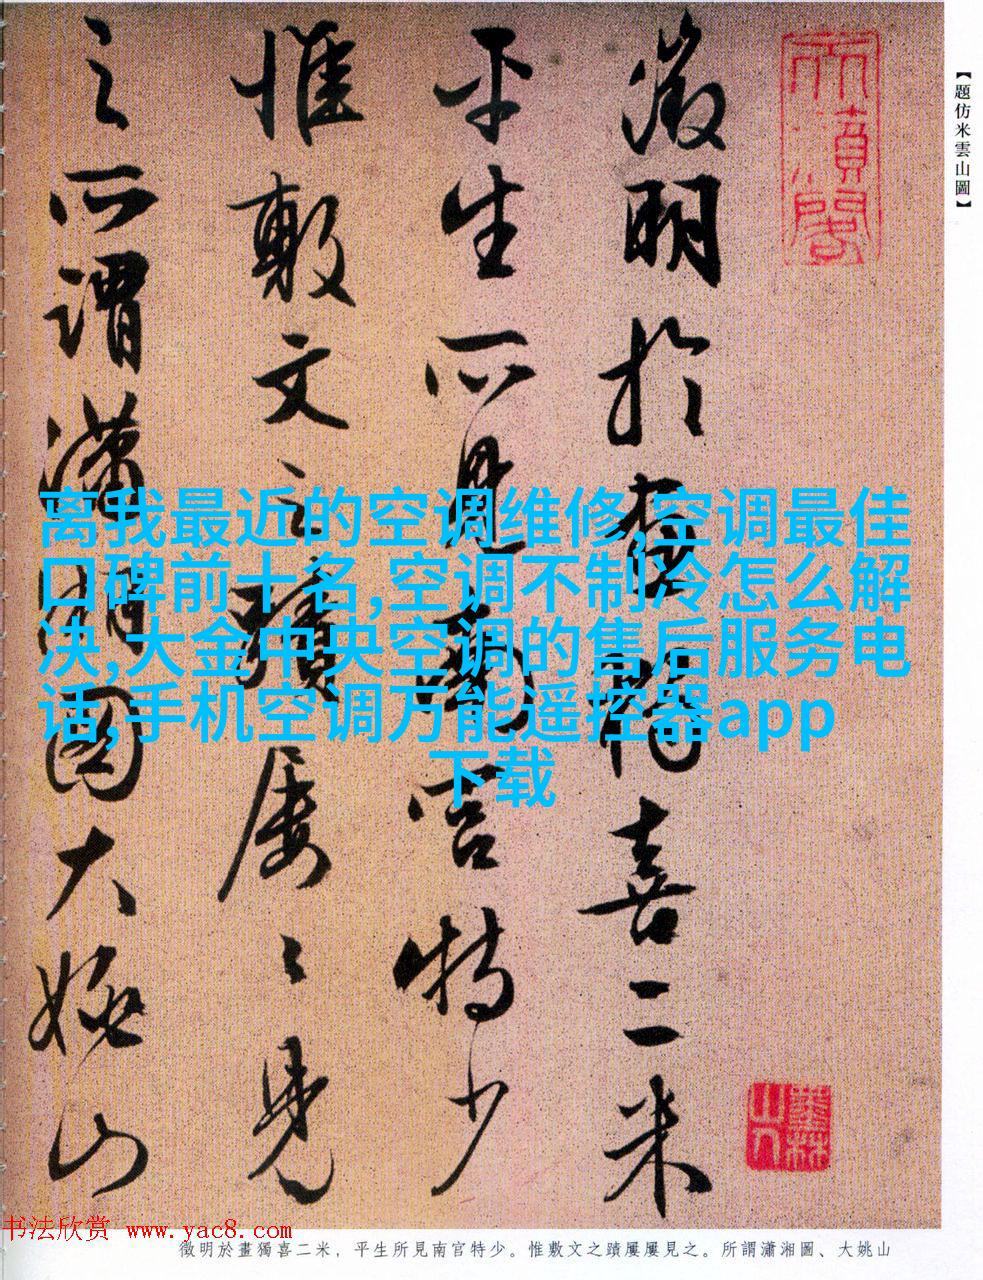 【題仿米雲山圖】
徵明於畫獨喜二米
平生所見南宮特少
惟敷文之蹟屢〻見
之所謂瀟湘圖大姚山
离我最近的空调维修,空调最佳
口碑前十名,空调不制冷怎么解
决,大金中央空调的售后服务电
话,手机空调万能遥控器app
下载
墨林
山人
书法欣赏 www.yac8.com
徵明於畫獨喜二米，平生所見南宮特少。惟敷文之蹟屢屢見之。所謂瀟湘圖、大姚山